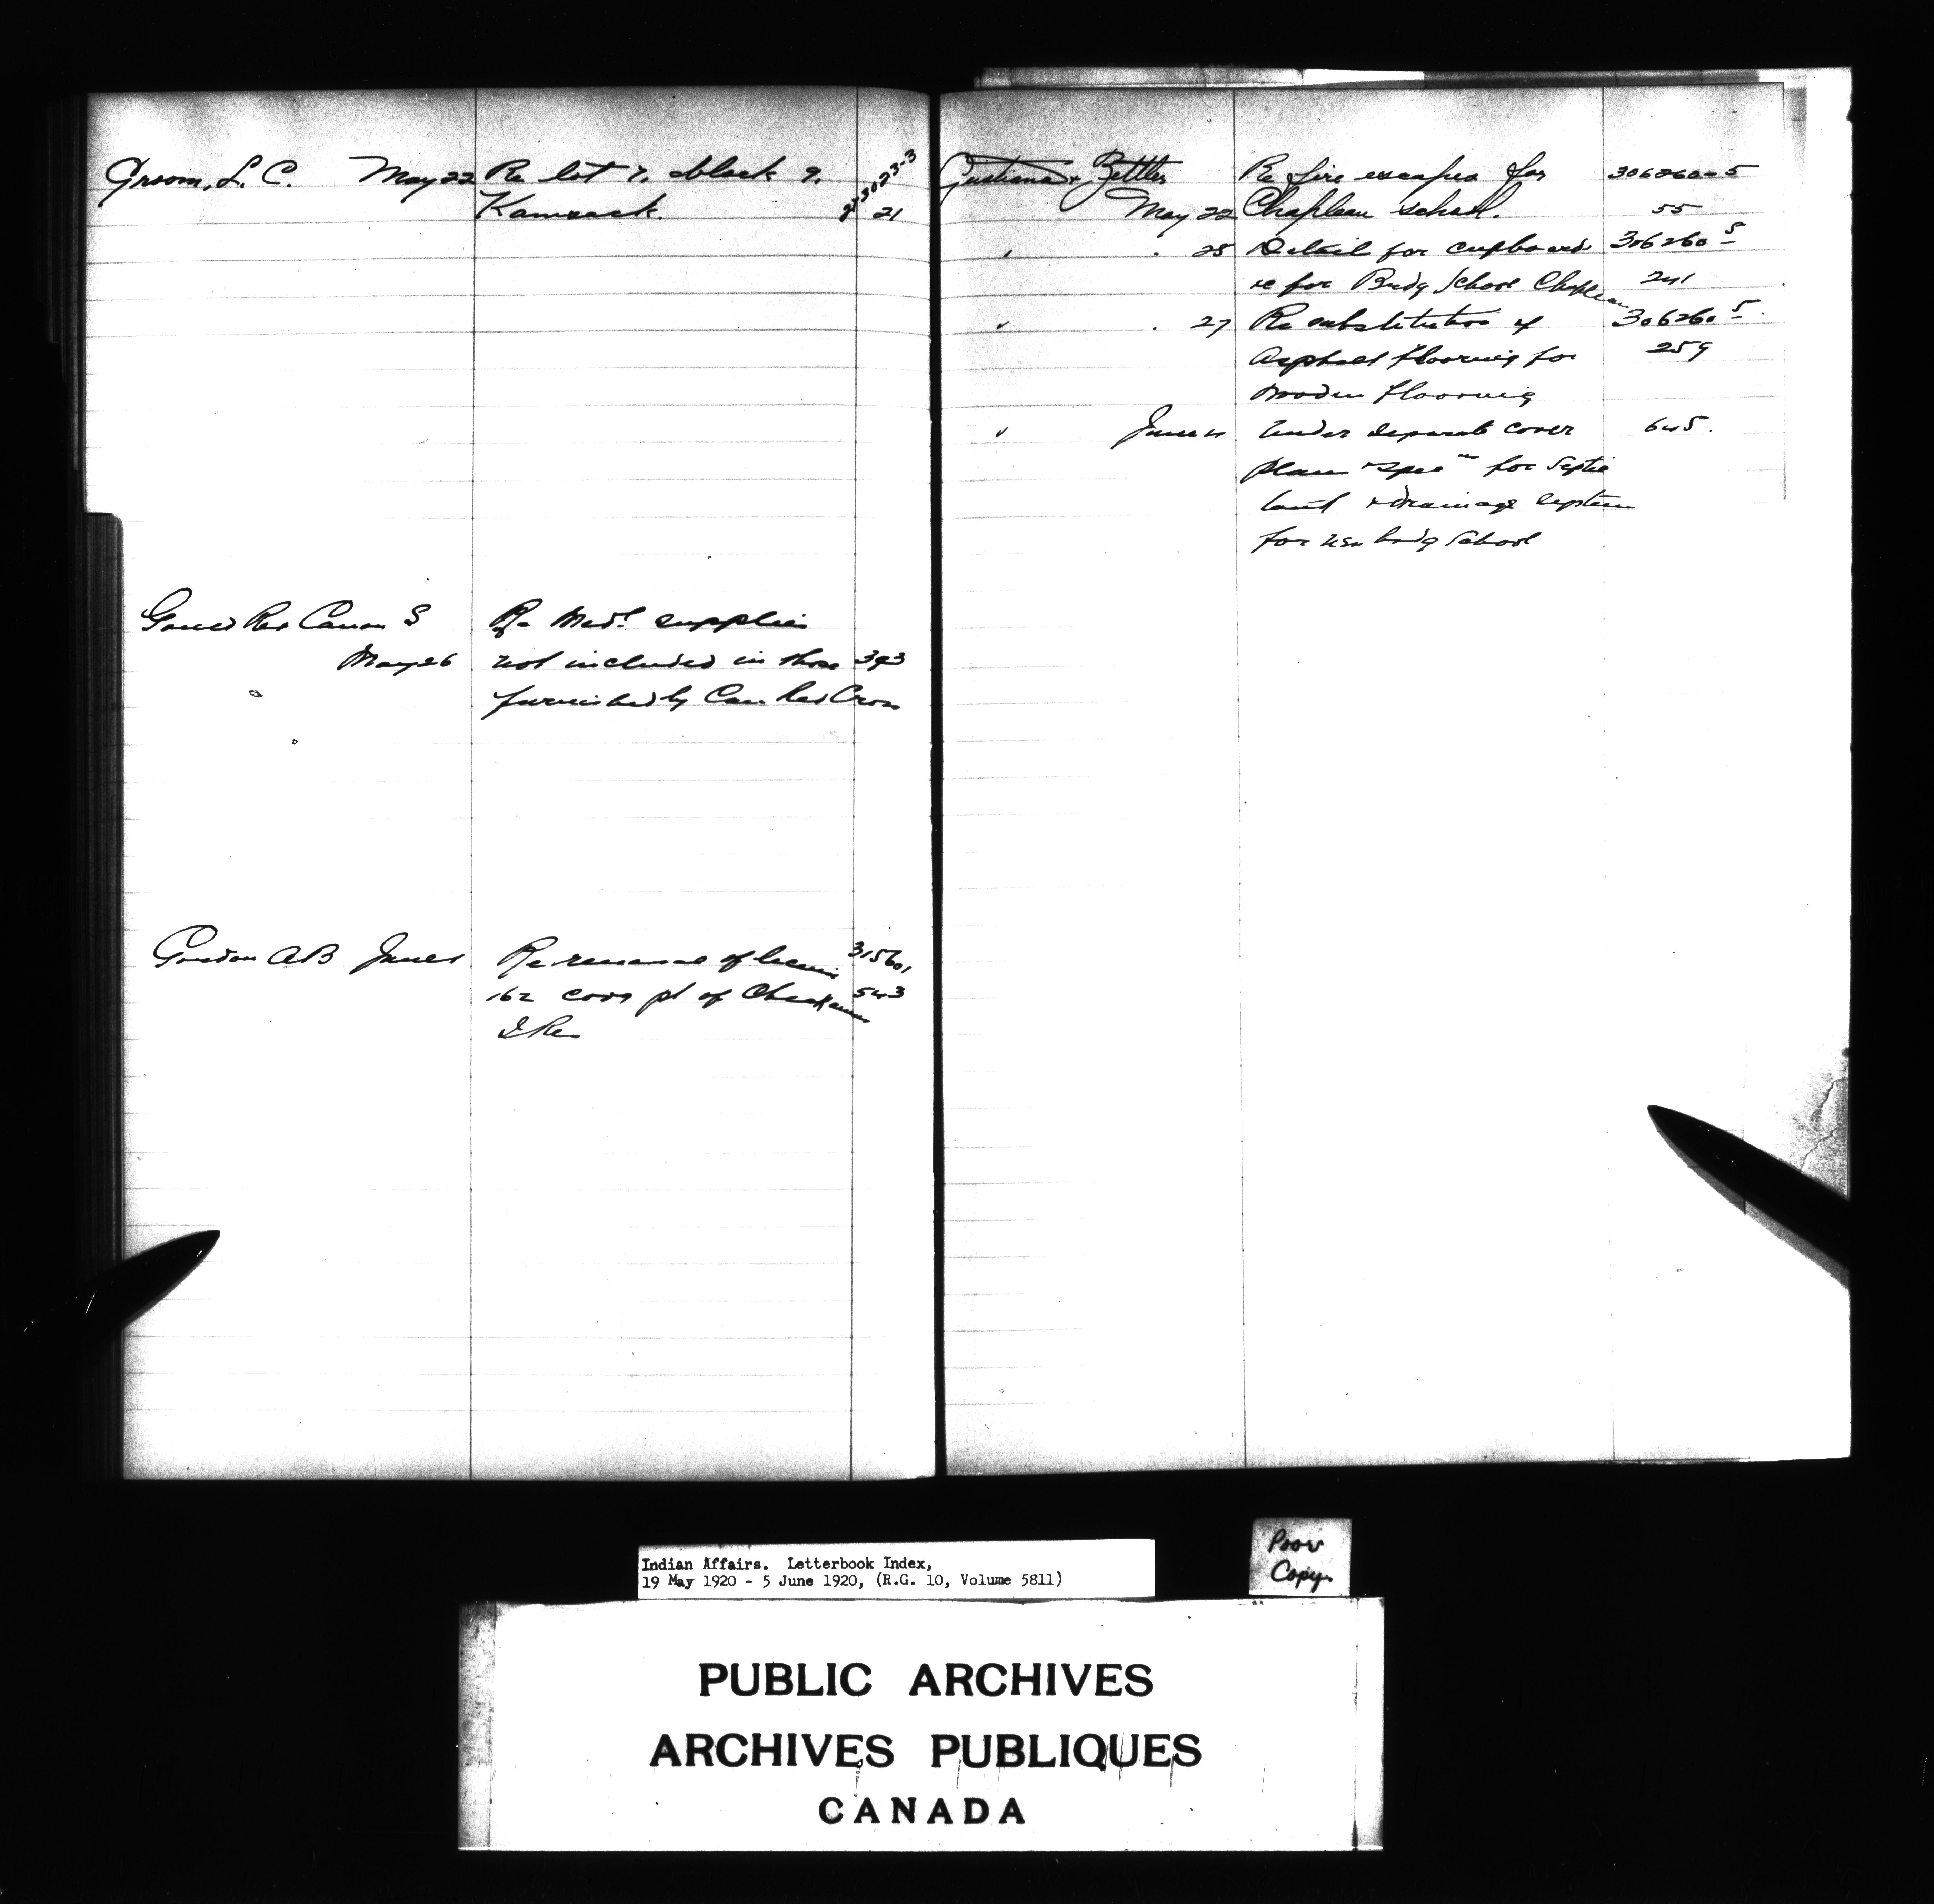 Groom, L. C. May 22 Re lot 7, block 9,
Kamsack. 21
Gould Rev Canon S Re Med. supplies
May 26 not included in those 393
furnished by Can Red Cross
Gordon A B June 1 Re renewal of license 315601
162 covg pt of Cheakamus 543
I Re
Gustiana & Zettler Re fire escapes for 306260-5
May 22 Chapleau school. 55
" " 25 Detail for cupboards 306260 5
&c for Brdg School Chapleau 241
" " 27 Re substitution of 306260 5
Asphalt flooring for 259
wooden flooring
" June 4 Under separate cover 645.
plan & spec for Septic
tank & drainage system
for new brdg School
Indian Affairs. Letterbook Index,
19 May 1920 - 5 June 1920, (R.G. 10, Volume 5811)
Poor
Copy
PUBLIC ARCHIVES
ARCHIVES PUBLIQUES
CANADA